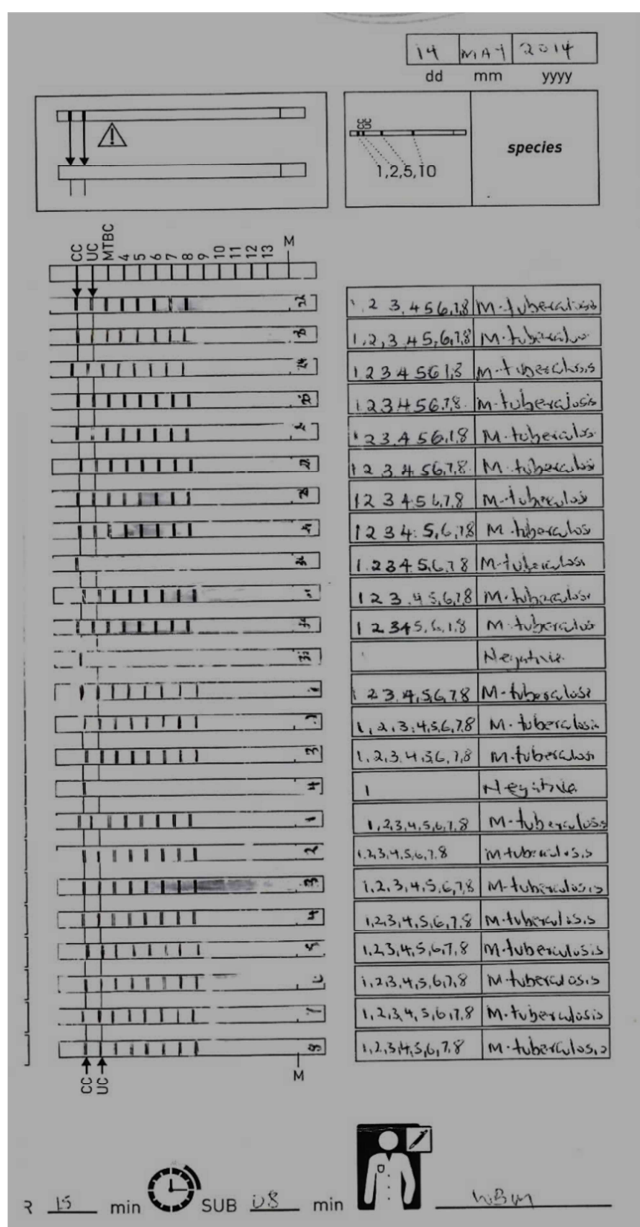 14 MAY 2014
dd mm yyyy
CC
UC
1,2,5,10
species
CC UC MTBC 4 5 6 7 8 9 10 11 12 13 M
1,2 3,4 5 6,7,8 M.tuberculosis
1,2,3,4 5,6,7,8 M.tuberculo
1 2 3 4 5 6 M.tuberculosis
1 2 3 4 5 6.7.8. M.tuberculosis
1 2 3.4 5 6 M.tuberculos
1 2 3.4 5 6,7,8. M.tuberculosis
1 2 3 4 5 6,7,8 M.tuberculosis
1 2 3 4: 5,6,7,8 M.tuberculosis
1.2 3 4 5,6,7 8 M.tuberculosis
1 2 3.4 5,6,7,8 M.tuberculosis
1 2 3 4 5,6, M.tuberculosis
Negative
1 2 3.4,5,6,7 8 M.tuberculosi
1,2,3,4,5,6,7,8 M.tuberculosis
3 1,2,3,4,5,6,7,8 M.tuberculosis
4 1 Negative
1 1,2,3,4,5,6,7,8 M.tuberculosis
2 1,2,3,4,5,6,7,8 M.tuberculosis
3 1,2,3,4,5,6,7,8 M.tuberculosis
4 1,2,3,4,5,6,7,8 M.tuberculosis
5 1,2,3,4,5,6,7,8 M.tuberculosis
6 1,2,3,4,5,6,7,8 M.tuberculosis
7 1,2,3,4,5,6,7,8 M.tuberculosis
8 1,2,3,4,5,6,7,8 M.tuberculosis
CC UC M
15 min SUB 08 min WBM